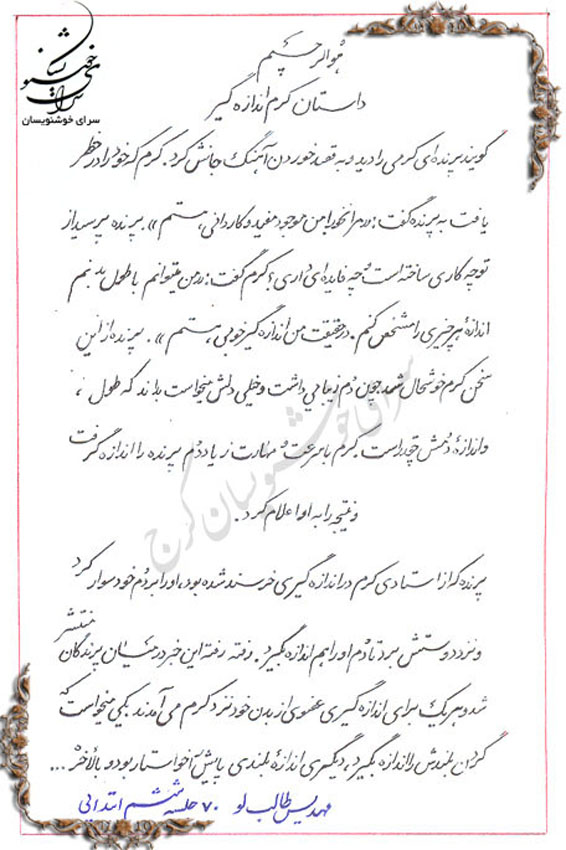 هوالرحیم
سرای خوشنویسان
داستان کرم اندازه گیر
گویند پرنده ای کرمی را دید و به قصد خوردن آهنگ جانش کرد. کرم که خود را در خطر
یافت به پرنده گفت: «مرا نخور! من موجود مفید و کاردانی هستم». پرنده پرسید از
تو چه کاری ساخته است؟ چه فایده ای داری؟ کرم گفت: «من میتوانم با طول بدنم
اندازهٔ هر چیزی را مشخص کنم. در حقیقت من اندازه گیر خوبی هستم». پرنده از این
سخن کرم خوشحال شد چون دم زیبایی داشت و خیلی دلش میخواست بداند که طول،
و اندازهٔ دمش چقدر است. کرم با سرعت و مهارت زیاد دم پرنده را اندازه گرفت
و نتیجه را به او اعلام کرد.
پرنده که از استادی کرم در اندازه گیری خرسند شده بود، او را بر دم خود سوار کرد
و نزد دوستش برد تا دم او را هم اندازه بگیرد. رفته رفته این خبر در میان پرندگان منتشر
شد و هر یک برای اندازه گیری عضوی از بدن خود نزد کرم می آمدند یکی میخواست که
گردن بلندش را اندازه بگیرد، دیگری اندازهٔ بلندی پایش را خواستار بود و بالأخره ...
مهدیس طالب لو ۷۰ جلسه ششم ابتدایی
سرای خوشنویسان کرج